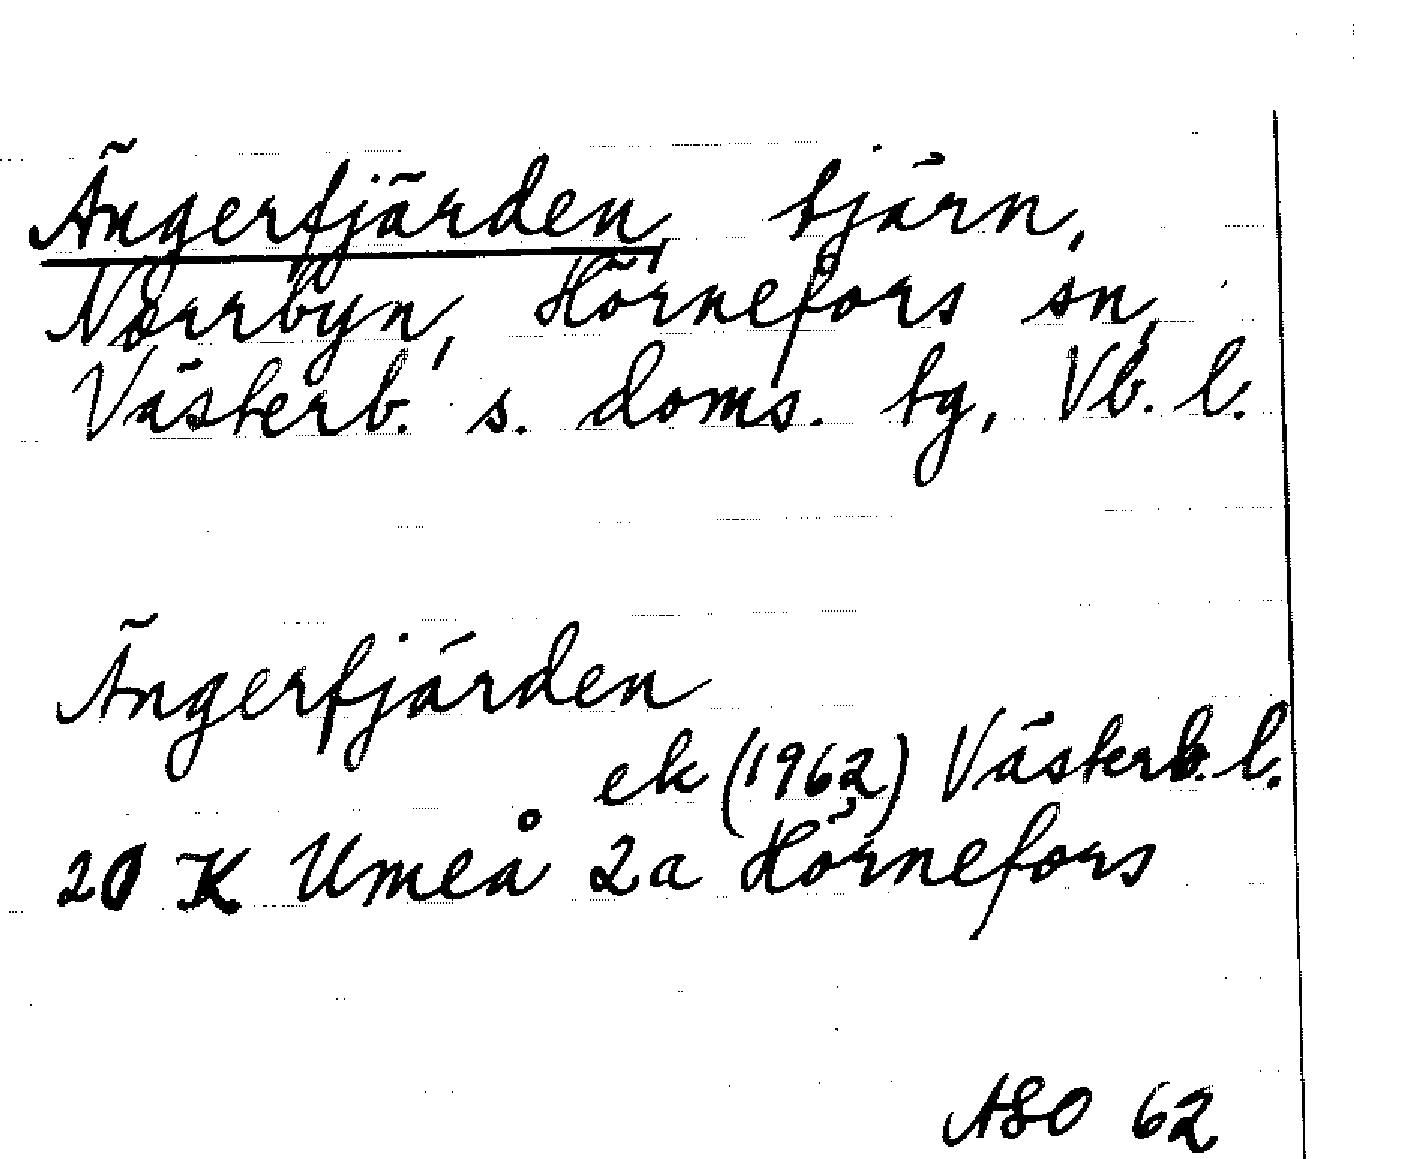 Ängerfjärden, tjärn,
Norrbyn, Hörnefors sn,
Västerb. s. doms. tg, Vb. l.
Ängerfjärden
ek (1962) Västerb. l.
20 K Umeå 2a Hörnefors
ASO 62